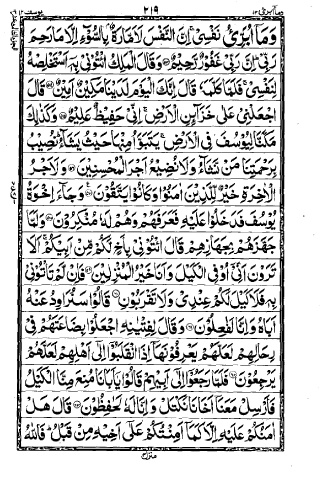 وما ابرئ ٢١٩ يوسف ١٢
وَمَآ اُبَرِّئُ نَفْسِيْ ۚ اِنَّ النَّفْسَ لَاَمَّارَةٌۢ بِالسُّوْٓءِ اِلَّا مَا رَحِمَ
رَبِّيْ ۭ اِنَّ رَبِّيْ غَفُوْرٌ رَّحِيْمٌ ۝ وَقَالَ الْمَلِكُ ائْتُوْنِيْ بِهٖٓ اَسْتَخْلِصْهُ
لِنَفْسِيْ ۚ فَلَمَّا كَلَّمَهٗ قَالَ اِنَّكَ الْيَوْمَ لَدَيْنَا مَكِيْنٌ اَمِيْنٌ ۝ قَالَ
اجْعَلْنِيْ عَلٰي خَزَاۗىِٕنِ الْاَرْضِ ۚ اِنِّىْ حَفِيْظٌ عَلِيْمٌ ۝ وَكَذٰلِكَ
مَكَّنَّا لِيُوْسُفَ فِي الْاَرْضِ ۚ يَتَبَوَّاُ مِنْهَا حَيْثُ يَشَاۗءُ ۭ نُصِيْبُ
بِرَحْمَتِنَا مَنْ نَّشَاۗءُ وَلَا نُضِيْعُ اَجْرَ الْمُحْسِنِيْنَ ۝ وَلَاَجْرُ
الْاٰخِرَةِ خَيْرٌ لِّلَّذِيْنَ اٰمَنُوْا وَكَانُوْا يَتَّقُوْنَ ۝ وَجَاۗءَ اِخْوَةُ
يُوْسُفَ فَدَخَلُوْا عَلَيْهِ فَعَرَفَهُمْ وَهُمْ لَهٗ مُنْكِرُوْنَ ۝ وَلَمَّا
جَهَّزَهُمْ بِجَهَازِهِمْ قَالَ ائْتُوْنِيْ بِاَخٍ لَّكُمْ مِّنْ اَبِيْكُمْ ۚ اَلَا
تَرَوْنَ اَنِّىْٓ اُوْفِي الْكَيْلَ وَاَنَا خَيْرُ الْمُنْزِلِيْنَ ۝ فَاِنْ لَّمْ تَاْتُوْنِيْ
بِهٖ فَلَا كَيْلَ لَكُمْ عِنْدِيْ وَلَا تَقْرَبُوْنِ ۝ قَالُوْا سَنُرَاوِدُ عَنْهُ
اَبَاهُ وَاِنَّا لَفٰعِلُوْنَ ۝ وَقَالَ لِفِتْيٰنِهِ اجْعَلُوْا بِضَاعَتَهُمْ فِيْ
رِحَالِهِمْ لَعَلَّهُمْ يَعْرِفُوْنَهَآ اِذَا انْقَلَبُوْٓا اِلٰٓى اَهْلِهِمْ لَعَلَّهُمْ
يَرْجِعُوْنَ ۝ فَلَمَّا رَجَعُوْٓا اِلٰٓى اَبِيْهِمْ قَالُوْا يٰٓاَبَانَا مُنِعَ مِنَّا الْكَيْلُ
فَاَرْسِلْ مَعَنَآ اَخَانَا نَكْتَلْ وَاِنَّا لَهٗ لَحٰفِظُوْنَ ۝ قَالَ هَلْ
اٰمَنُكُمْ عَلَيْهِ اِلَّا كَمَآ اَمِنْتُكُمْ عَلٰٓي اَخِيْهِ مِنْ قَبْلُ ۭ فَاللّٰهُ
منزل ٣